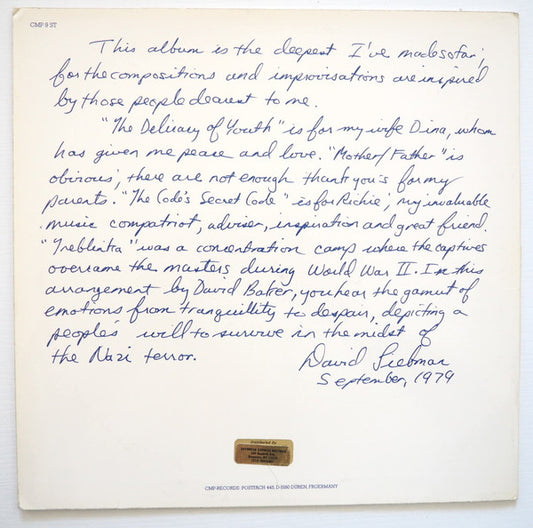 CMP 9 ST
This album is the deepest I've made so far;
for the compositions and improvisations are inspired
by those people dearest to me.
"The Delicacy of Youth" is for my wife Dina, whom
has given me peace and love. "Mother/Father" is
obvious; there are not enough thank you's for my
parents. "The Code's Secret Code" is for Richie; my invaluable
music compatriot, adviser, inspiration and great friend.
"Treblinka" was a concentration camp where the captives
overcame the masters during World War II. In this
arrangement by David Baker, you hear the gamut of
emotions from tranquillity to despair, depicting a
peoples will to survive in the midst of
the Nazi terror.
David Liebman
September, 1979
Distributed by
CMP-RECORDS: POSTFACH 445, D-5160 DÜREN, FRGERMANY